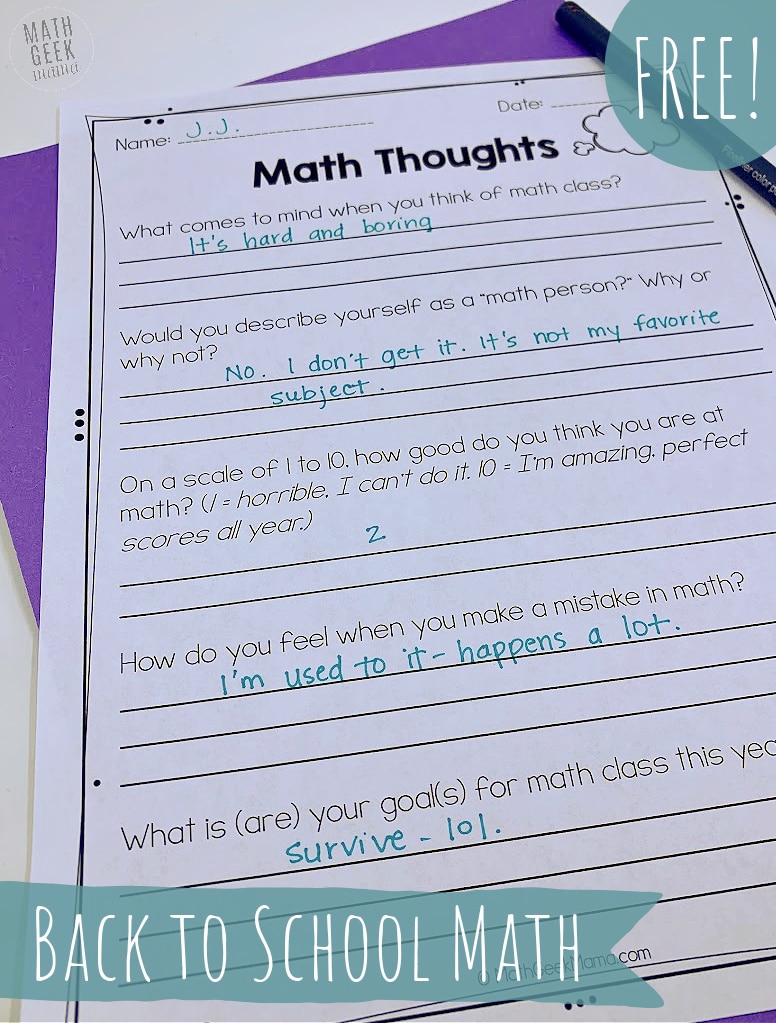 MATH
GEEK
mama
FREE!
Name: J.J.
Date:
Math Thoughts
What comes to mind when you think of math class?
It's hard and boring
Would you describe yourself as a "math person?" Why or
why not?
No. I don't get it. It's not my favorite
subject.
On a scale of 1 to 10, how good do you think you are at
math? (1 = horrible, I can't do it. 10 = I'm amazing, perfect
scores all year.)
2
How do you feel when you make a mistake in math?
I'm used to it - happens a lot.
What is (are) your goal(s) for math class this yea
survive - lol.
BACK TO SCHOOL MATH
© MathGeekMama.com